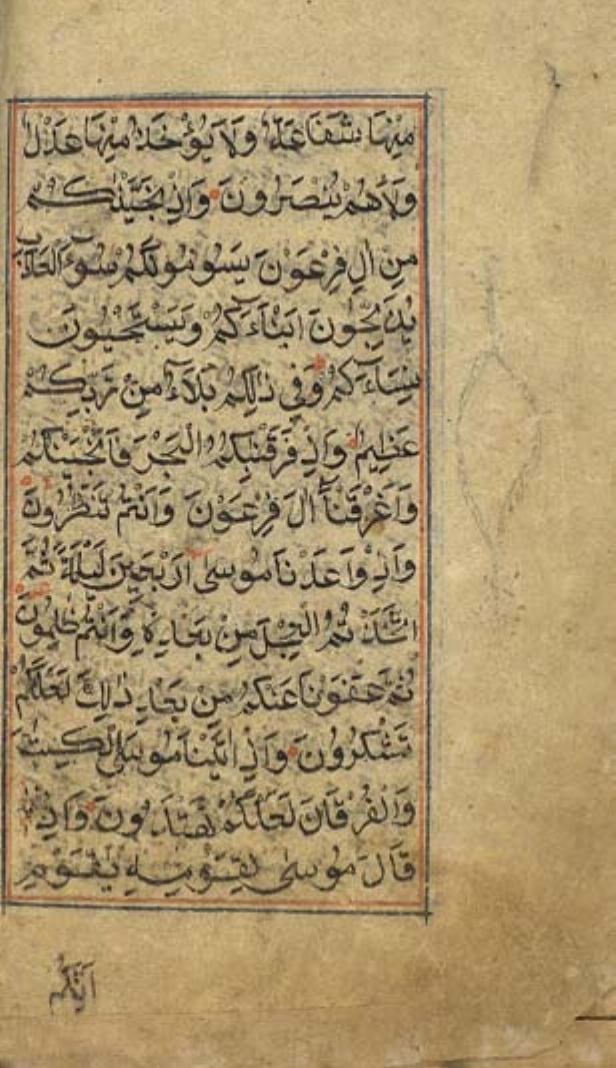 مِنْهَا شَفَاعَةٌ وَلَا يُؤْخَذُ مِنْهَا عَدْلٌ
وَلَا هُمْ يُنْصَرُونَ وَاِذْ نَجَّيْنٰكُمْ
مِنْ اٰلِ فِرْعَوْنَ يَسُوْمُوْنَكُمْ سُوْٓءَ الْعَذَابِ
يُذَبِّحُوْنَ اَبْنَآءَكُمْ وَيَسْتَحْيُوْنَ
نِسَآءَكُمْ وَفِيْ ذٰلِكُمْ بَلَآءٌ مِنْ رَبِّكُمْ
عَظِيْمٌ وَاِذْ فَرَقْنَا بِكُمُ الْبَحْرَ فَاَنْجَيْنٰكُمْ
وَاَغْرَقْنَآ اٰلَ فِرْعَوْنَ وَاَنْتُمْ تَنْظُرُوْنَ
وَاِذْ وٰعَدْنَا مُوْسٰٓى اَرْبَعِيْنَ لَيْلَةً ثُمَّ
اتَّخَذْتُمُ الْعِجْلَ مِنْ بَعْدِهٖ وَاَنْتُمْ ظٰلِمُوْنَ
ثُمَّ عَفَوْنَا عَنْكُمْ مِنْ بَعْدِ ذٰلِكَ لَعَلَّكُمْ
تَشْكُرُوْنَ وَاِذْ اٰتَيْنَا مُوْسَى الْكِتٰبَ
وَالْفُرْقَانَ لَعَلَّكُمْ تَهْتَدُوْنَ وَاِذْ
قَالَ مُوْسٰى لِقَوْمِهٖ يٰقَوْمِ
اِنَّكُمْ